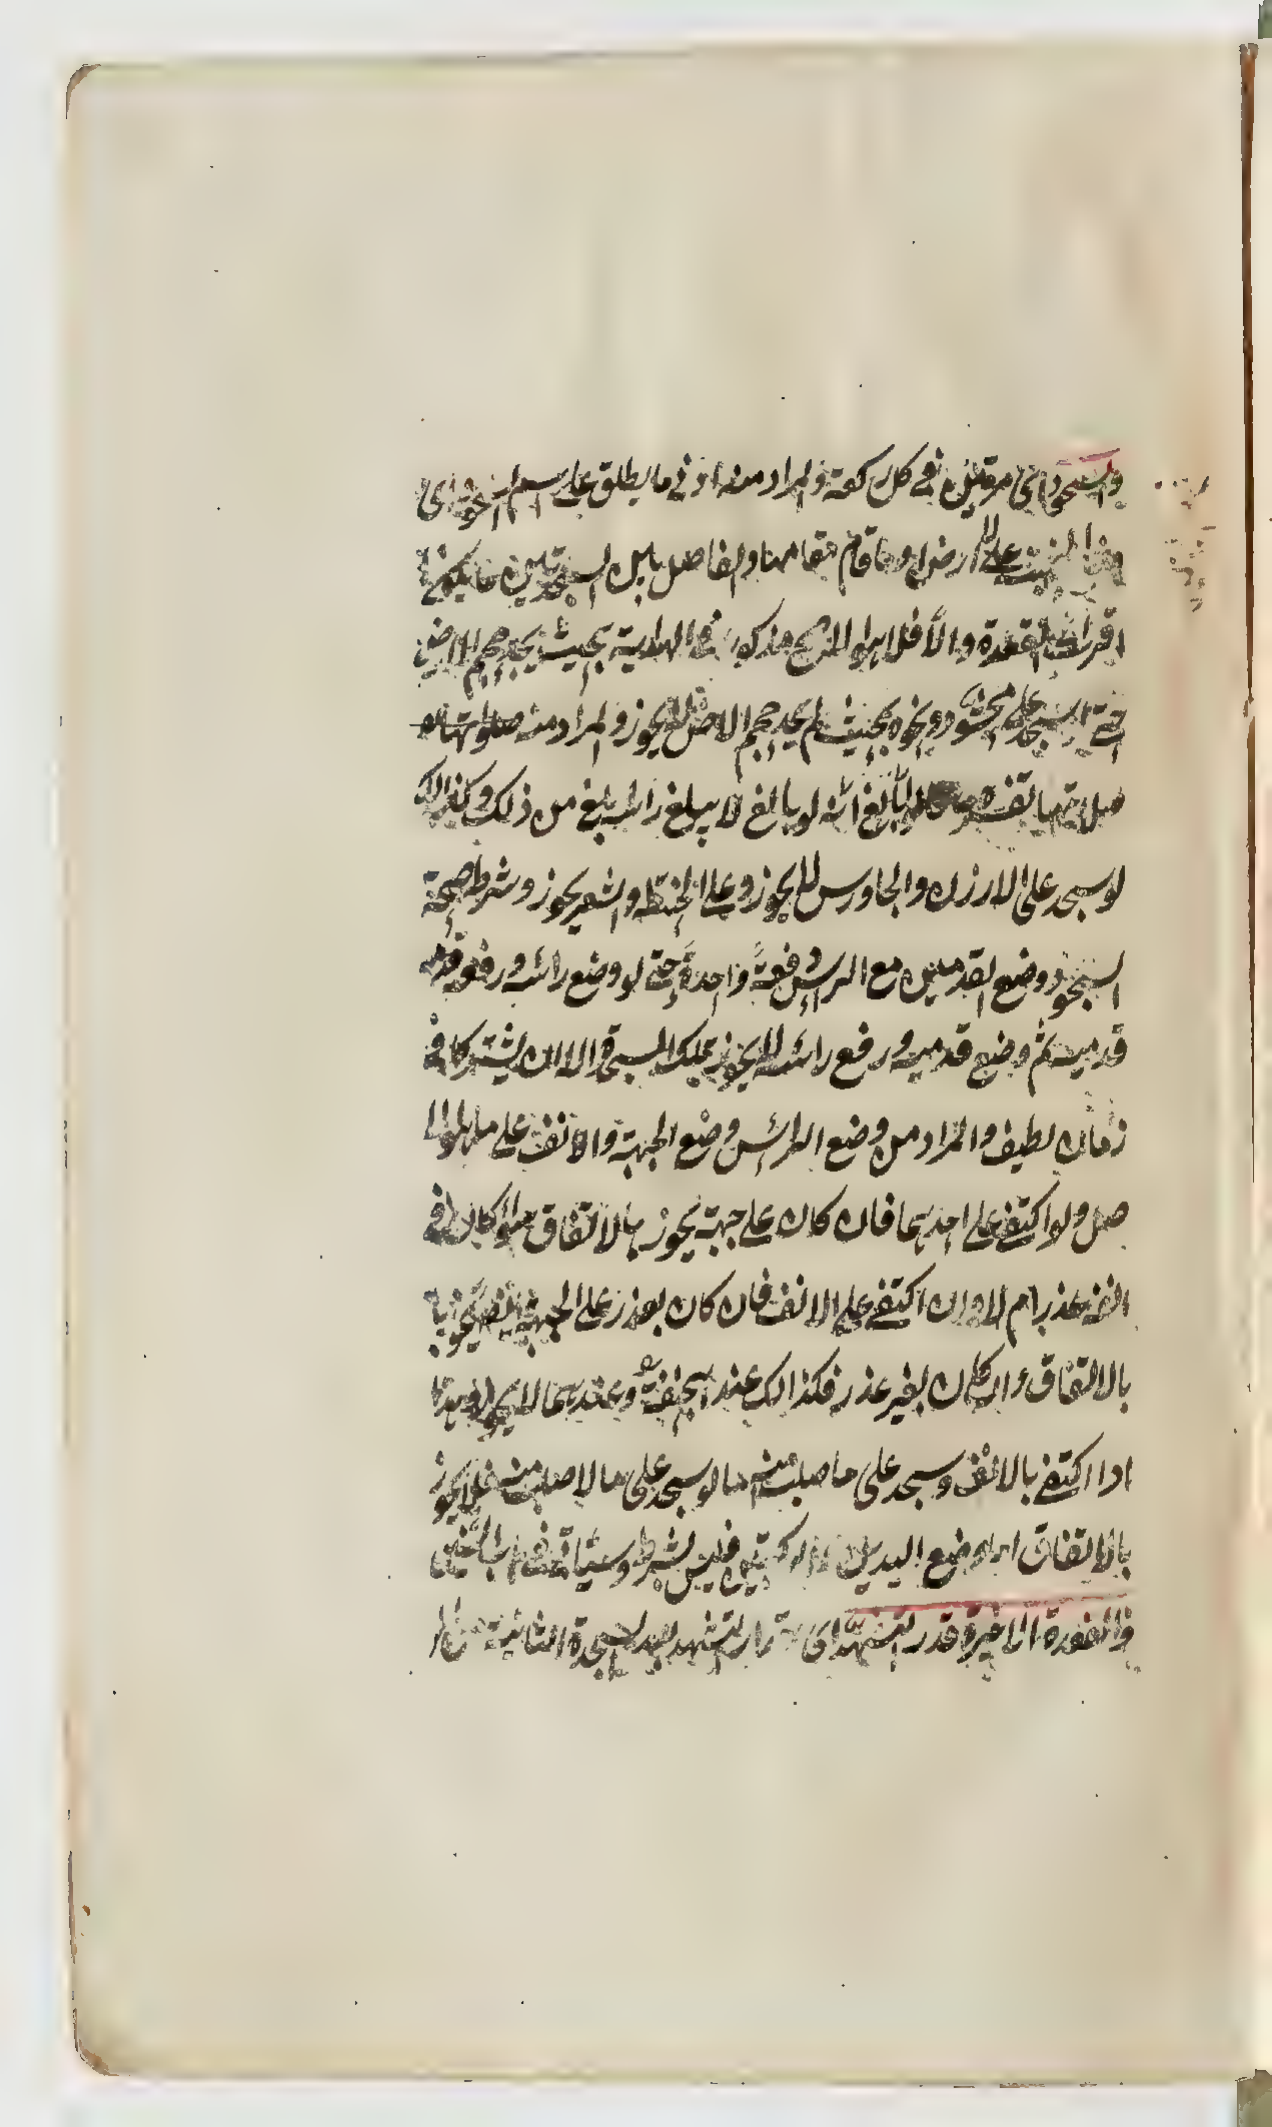 والسجود اى مرتين في كل ركعة والمراد منه ادنى ما يطلق عليه اسم السجود اى
على الارض او ما قام مقامها والفاصل بين السجدتين ما يكون
اقرب الى القعدة والا فلا هو الاصح مذكور في الهداية بحيث يجد حجم الارض
حتى لو سجد على المحشو ونحوه بحيث لم يجد حجم الارض لا يجوز والمراد منه
لو بالغ لا يبلغ راسه ابلغ من ذلك وكذالك
لو سجد على الارزن والجاورس لا يجوز وعلى الحنطة والشعير يجوز وشرط صحة
السجود وضع القدمين مع الراس دفعة واحدة حتى لو وضع رائسه ورفع قدمه
قدميه ثم وضع قدميه ورفع رائسه لا يجوز تلك السجدة الا ان يشتركا في
زمان لطيف والمراد من وضع الرائس وضع الجبهة والانف على ما هو الا
صل ولو اكتفى على احدهما فان كان على جبهة يجوز بالاتفاق سواء كان في
انفه عذر ام لا وان اكتفى على الانف فان كان بعذر على الجبهة
بالاتفاق وان كان بغير عذر فكذالك عند ابيحنيفة وعندهما لا يجوز
اذا اكتفى بالانف وسجد على ما صلب منه اما لو سجد على ما لا صلب منه فلا يجوز
بالاتفاق اما وضع اليدين والركبتين فليس بشرط
والقعدة الاخيرة قدر التشهد اى مقدار التشهد بعد السجدة الثانية